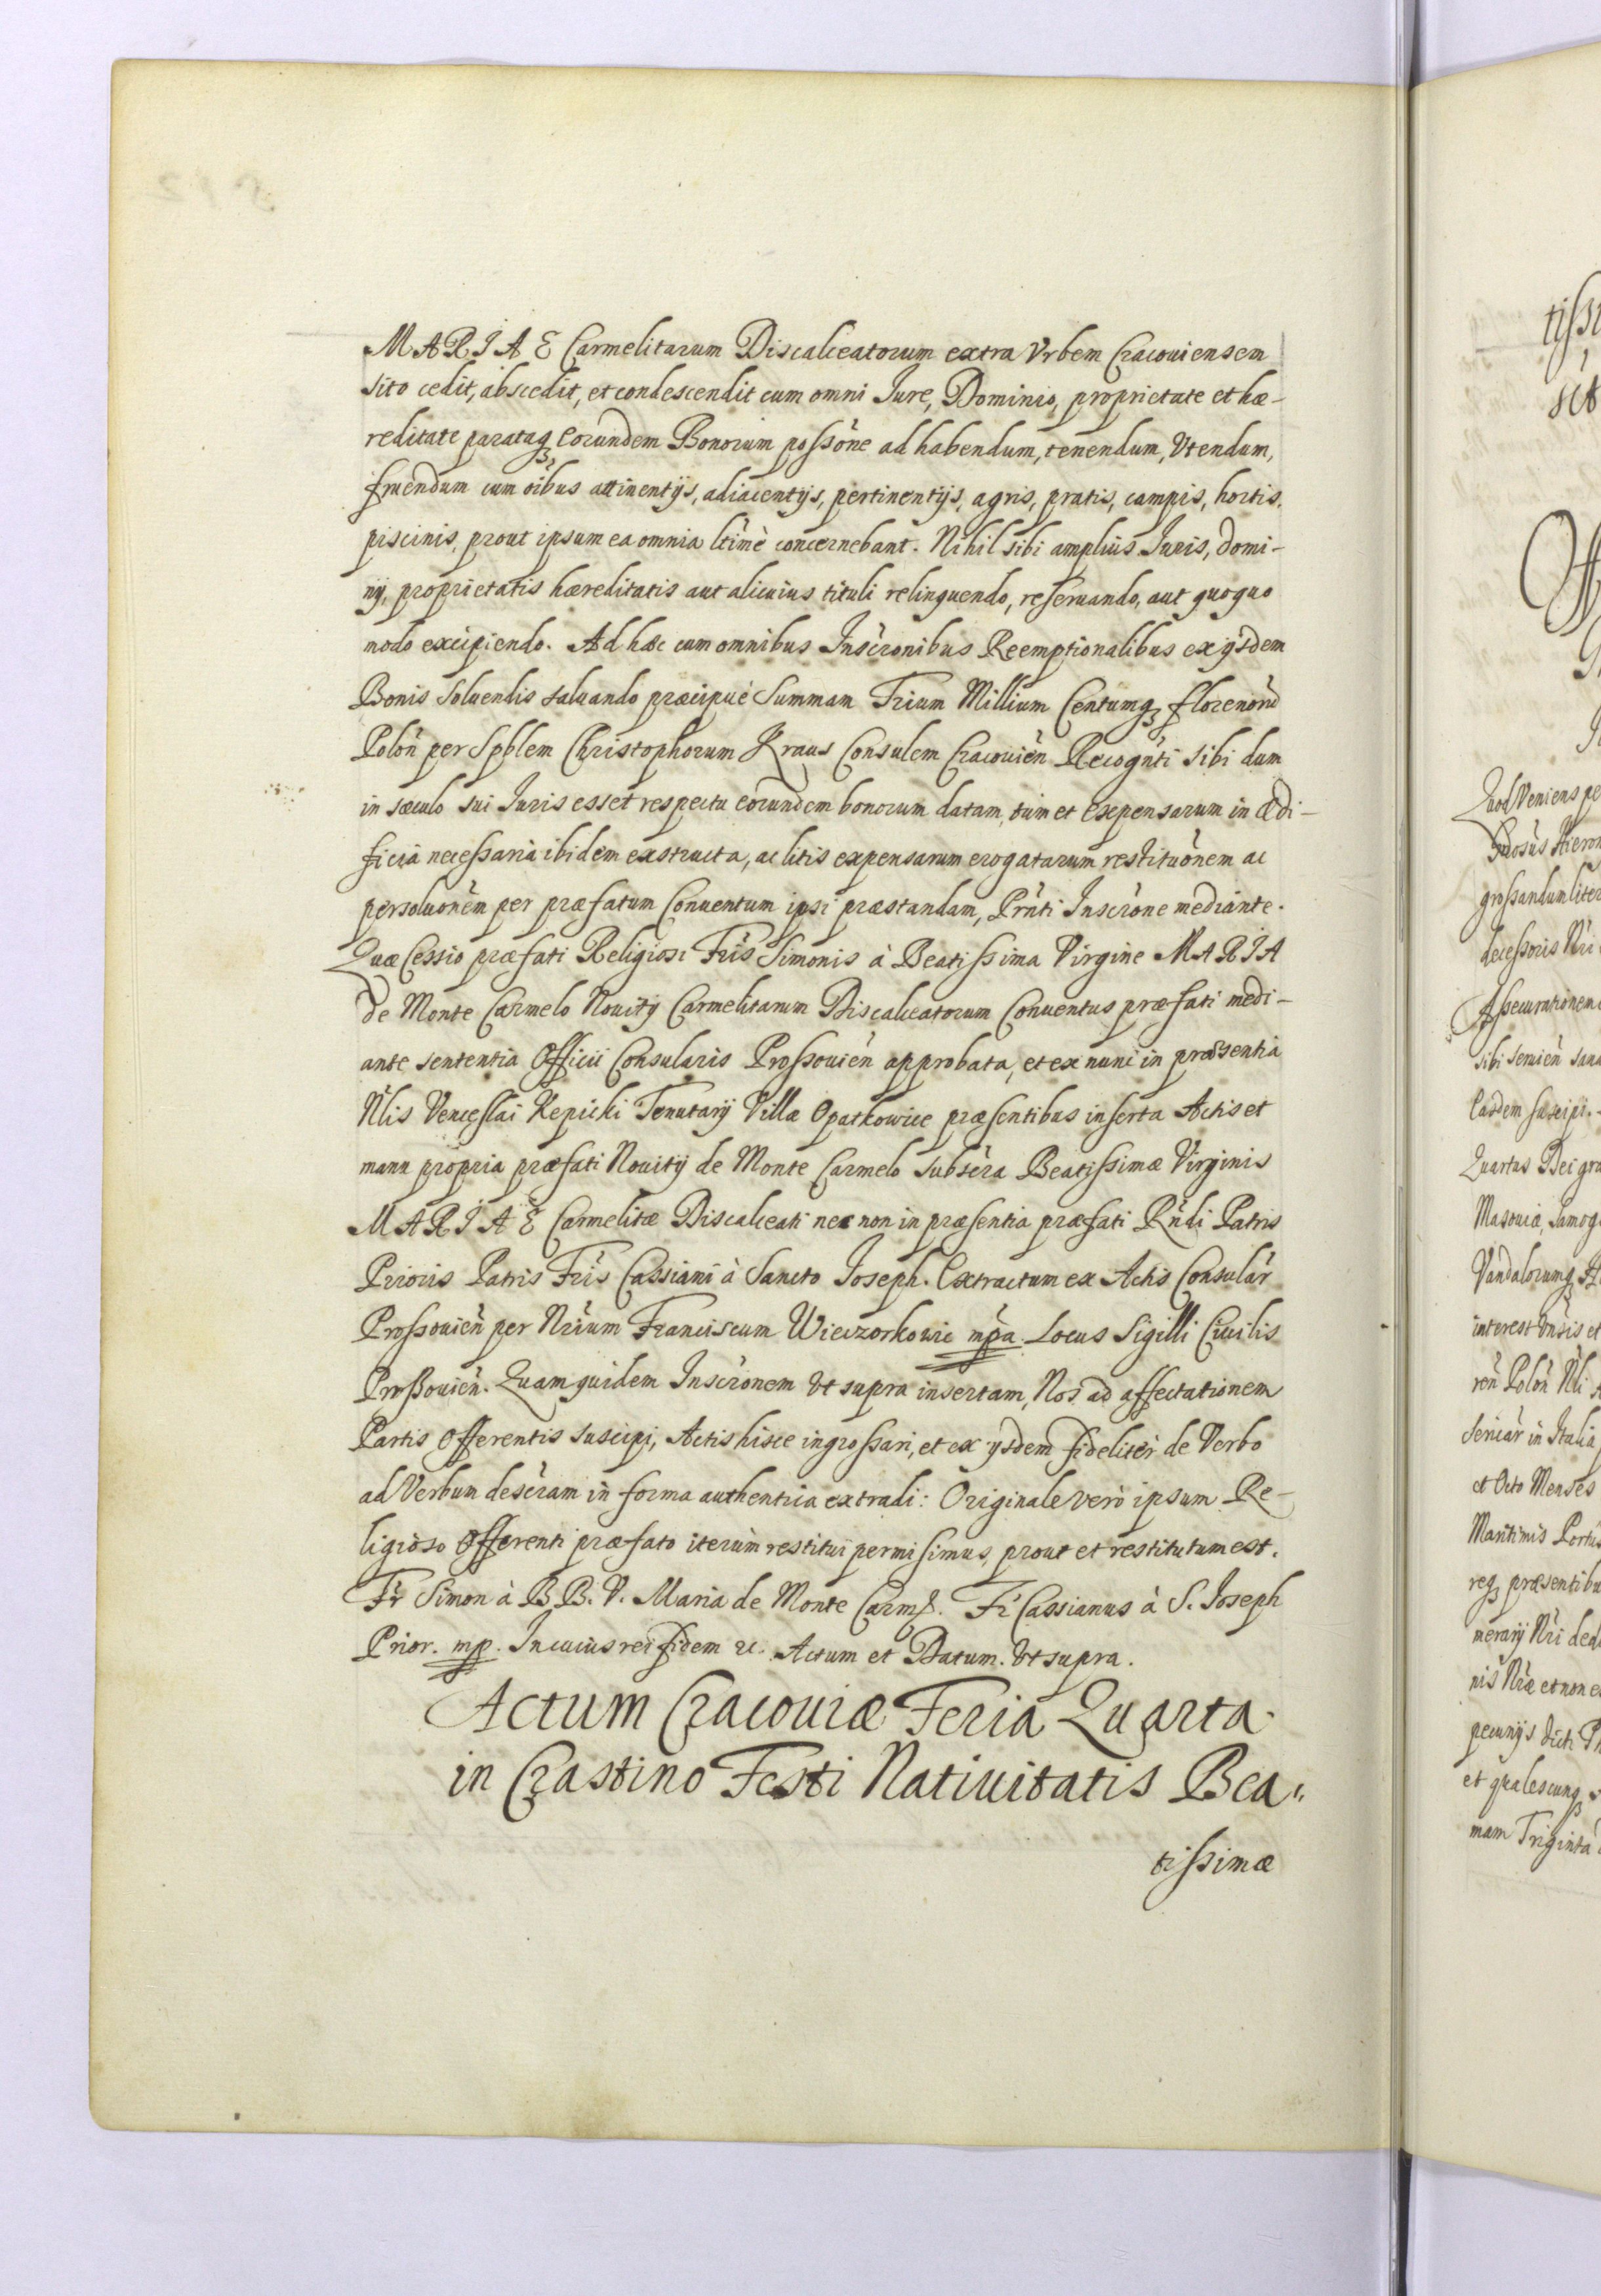 MARIAE Carmelitarum Discalceatorum extra Vrbem Cracouiensem
sito cedit, abscedit, et condescendit cum omni Jure, Dominio, proprietate et hæ-
reditate parataq3 eorundem Bonorum possōne ad habendum, tenendum, Vtendum,
fruendum cum oībus attinentijs, adiacentijs, pertinentijs, agris, pratis, campis, hortis,
piscinis, prout ipsum ea omnia ltīmè concernebant. Nihil sibi amplius Juris, domi-
nij, proprietatis hæreditatis aut alicuius tituli relinquendo, reseruando, aut quoquo
modo excipiendo. Ad hæc cum omnibus Inscrōnibus Reemptionalibus ex ijsdem
Bonis Soluendis saluando præcipuè Summam Trium Millium Centumq3 florenorū
Polōn per Spblem Christophorum Kraus Consulem Cracouiēn Recognti sibi dum
in sæculo sui Juris esset respectu eorundem bonorum datam, tùm et Expensarum in ædi-
ficia necessaria ibidem exstructa, ac litis expensarum erogatarum restituōnem ac
persoluōnem per præfatum Conuentum ipsi præstandam, Prnti Inscrōne mediante.
Quæ Cessio præfati Religiosi Frīs Simonis à Beatissima Virgine MARIA
de Monte Carmelo Nouitij Carmelitarum Discalceatorum Conuentus præfati medi-
ante sententia Officii Consularis Prossouiēn approbata, et ex nunc in præsentia
Nlis Venceslai Kepicki Tenutarij Villæ Opatkowice præsentibus inserta Actis et
manu propria præfati Nouitij de Monte Carmelo subscra Beatissimæ Virginis
MARIAE Carmelitæ Discalceati nec non in præsentia præfati Rndi Patris
Prioris Patris Frīs Cassiani à Sancto Joseph. Extractum ex Actis Consulār
Prossouiēn per Nrium Franciscum Wieczorkowic mpa. Locus Sigilli Ciuilis
Prossouiēn. Quam quidem Inscrōnem Vt supra insertam, Nos ad affectationem
Partis Offerentis suscipi, Actis hisce ingrossari, et ex ijsdem fideliter de Verbo
ad Verbum descram in forma authentica extradi: Originale verò ipsum Re-
ligioso Offerenti præfato iterùm restitui permisimus, prout et restitutum est.
Fr Simon à B B. V. Maria de Monte Carml. Fr Cassianus à S. Joseph
Prior. mp. In cuius rei fidem etc. Actum et Datum. Vt supra.
Actum Cracouiæ Feria Quarta
in Crastino Festi Natiuitatis Bea-
tissimæ